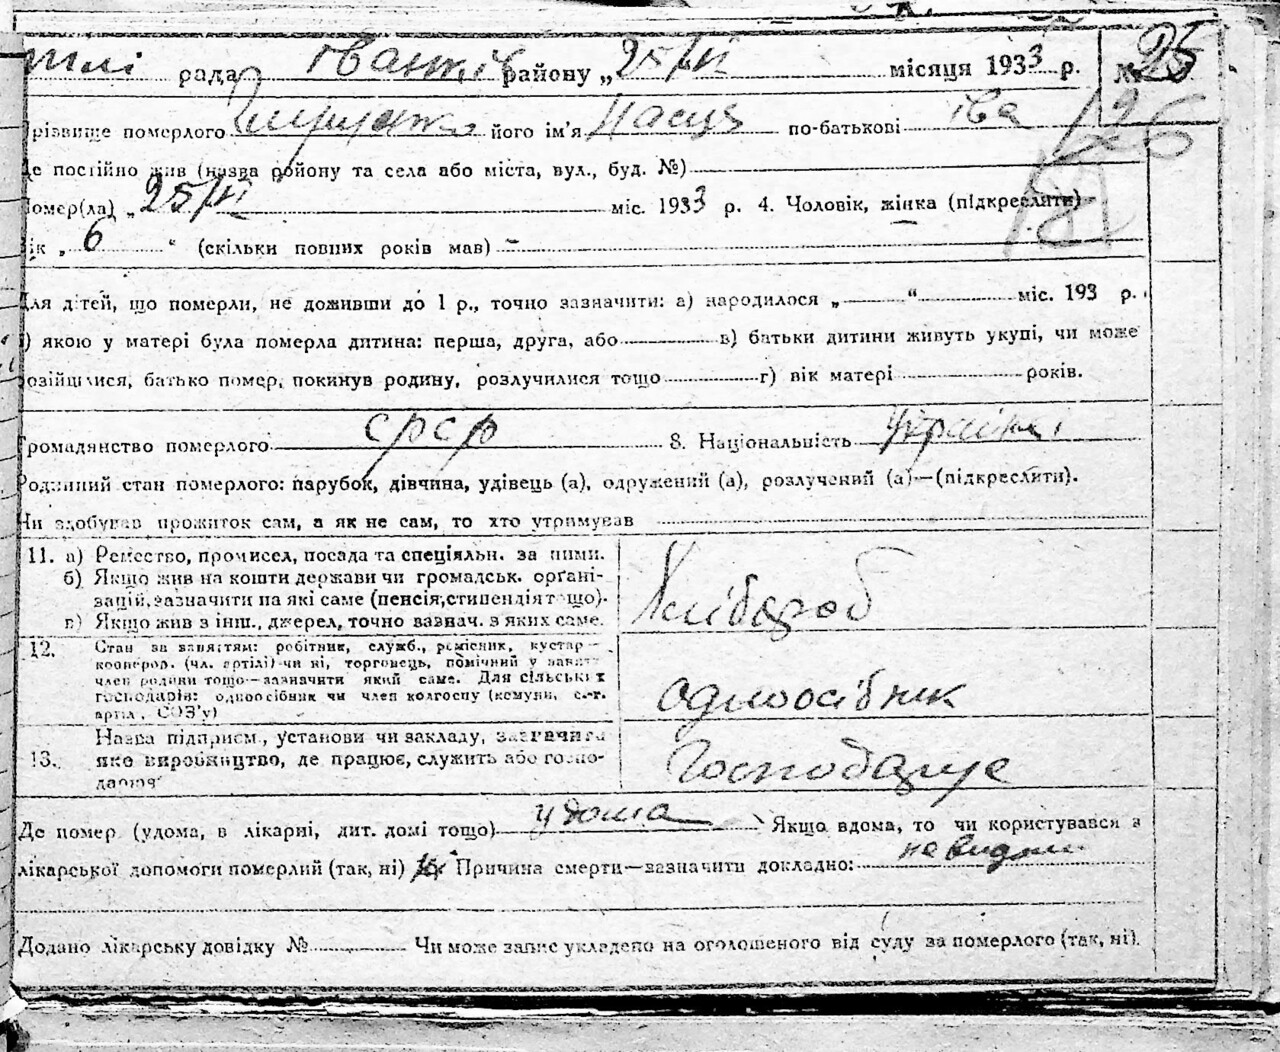 рада району „25/VI місяця 1933 р. № 25
різвище померлого його ім'я Настя по-батькові Іва 126
е постійно жив (назва району та села або міста, вул., буд. №)
омер(ла) „25/VI міс. 1933 р. 4. Чоловік, жінка (підкреслити)
ік „ 6 “ (скільки повних років мав) –
ля дітей, що померли, не доживши до 1 р., точно зазначити: а) народилося „ “ міс. 193 р.
) якою у матері була померла дитина: перша, друга, або в) батьки дитини живуть укупі, чи може
озійшлися, батько помер, покинув родину, розлучилися тощо г) вік матері років.
Громадянство померлого СРСР 8. Національність
Родинний стан померлого: парубок, дівчина, удівець (а), одружений (а), розлучений (а)—(підкреслити).
Чи здобував прожиток сам, а як не сам, то хто утримував
11. а) Ремество, промисел, посада та спеціяльн. за ними.
б) Якщо жив на кошти держави чи громадськ. орґані-
зацій, зазначити на які саме (пенсія, стипендія тощо).
в) Якщо жив з інш., джерел, точно зазнач. з яких саме.
Хлібороб
12. Стан за заняттям: робітник, служб., ремісник, кустар—
кооперов. (чл. артілі) чи ні, торговець, помічний у занят
член родини тощо—зазначити який саме. Для сільських
господарів: одноосібник чи член колгоспу (комуни, с.-г.
артіл., СОЗ'у)
одноосібник
13. Назва підприєм., установи чи закладу, зазначити
яке виробництво, де працює, служить або госпо-
дарює
Господарює
Де помер (удома, в лікарні, дит. домі тощо) удома Якщо вдома, то чи користувався з
лікарської допомоги померлий (так, ні) Причина смерти—зазначити докладно:
Додано лікарську довідку № Чи може запис укладено на оголошеного від суду за померлого (так, ні).